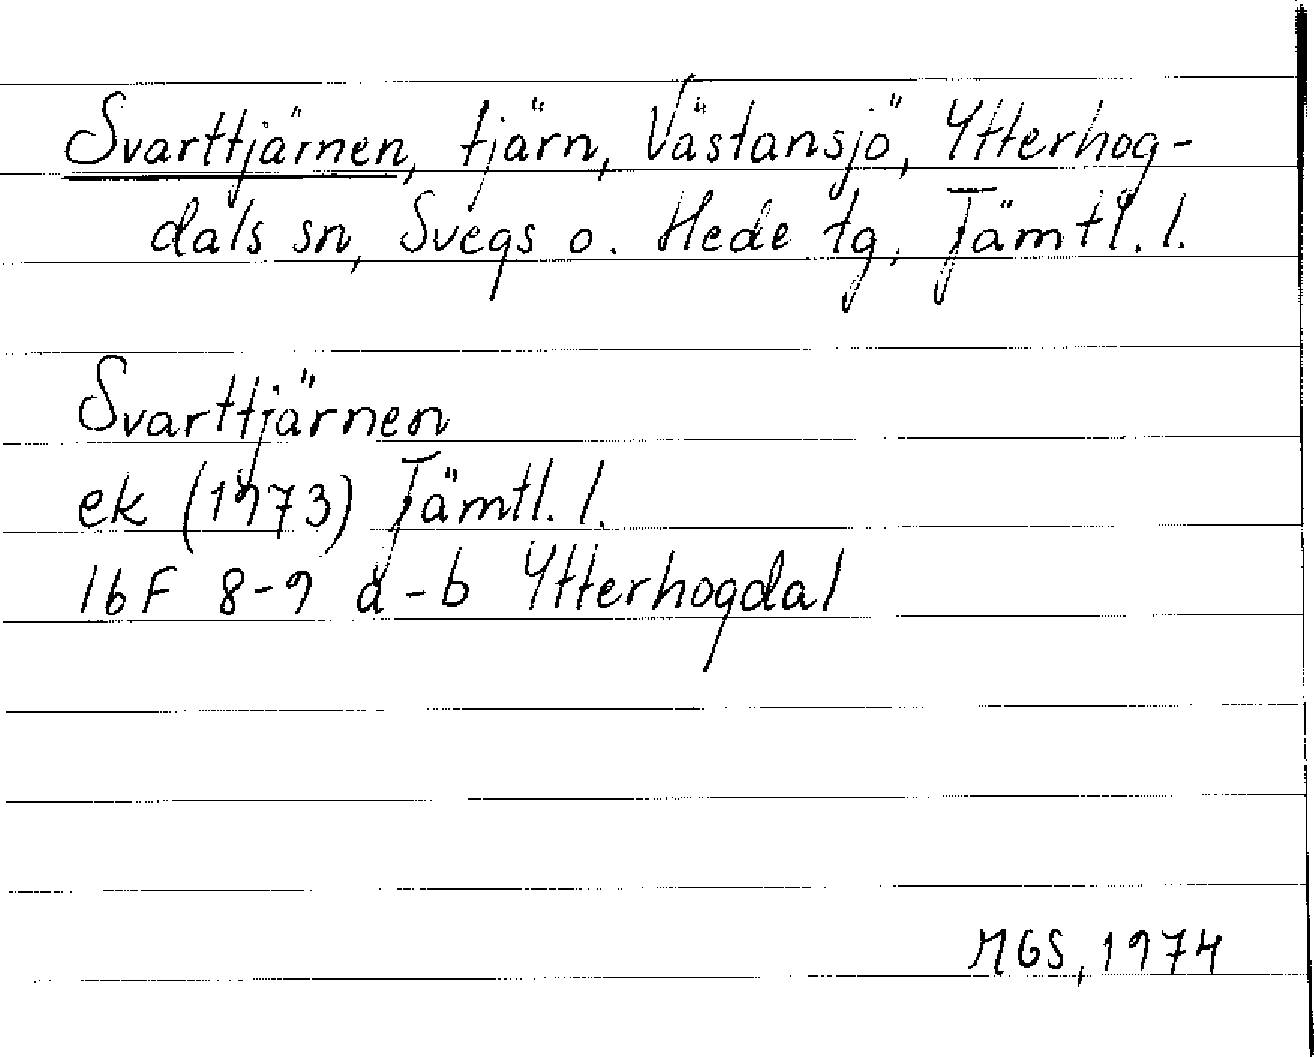 Svarttjärnen, tjärn, Västansjö, Ytterhog-
dals sn, Svegs o. Hede tg, Jämtl. l.
Svarttjärnen
ek (1973) Jämtl. l.
16F 8-9 a-b Ytterhogdal
MGS, 1974